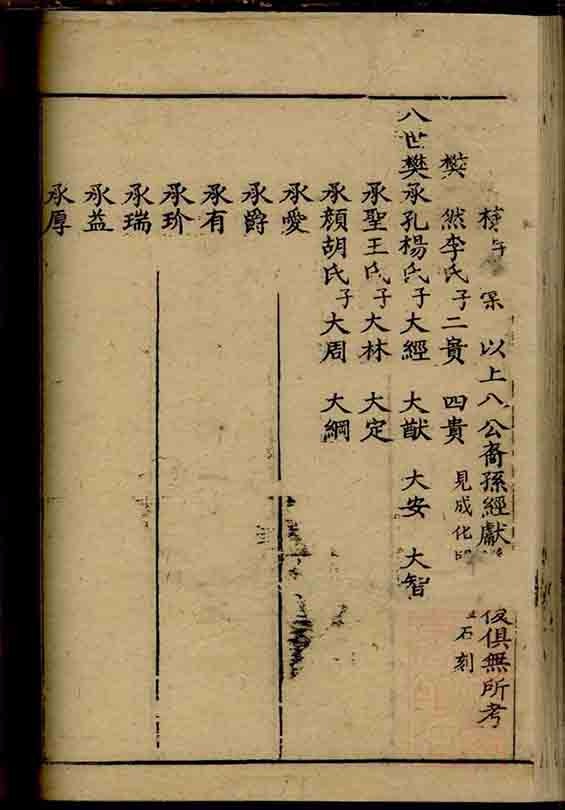 以上八公裔孫經獻 俱無所考
樊 然李氏子二貴 四貴 見成化 石刻
八世樊承孔楊氏子大經 大猷 大安 大智
承聖王氏子大林 大定
承顏胡氏子大周 大綱
承愛
承爵
承有
承玠
承瑞
承益
承厚